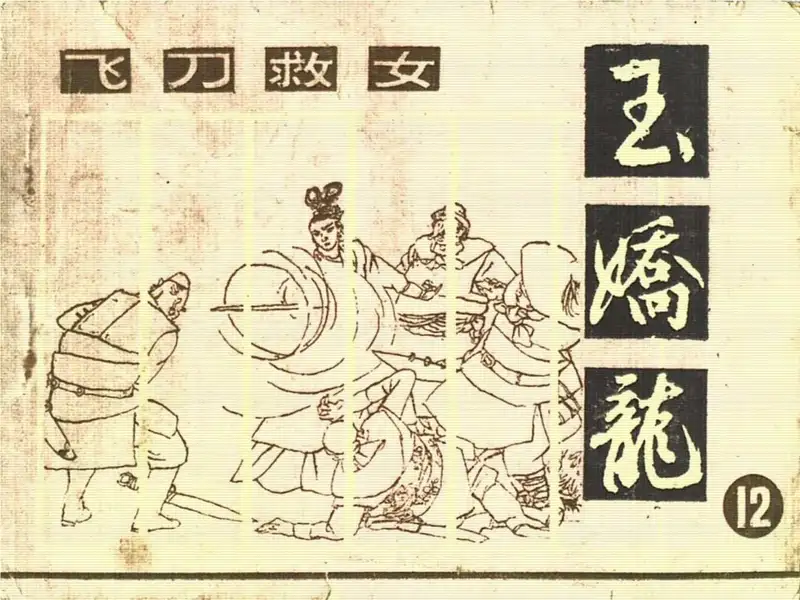 飞刀救女
玉嬌龍
12